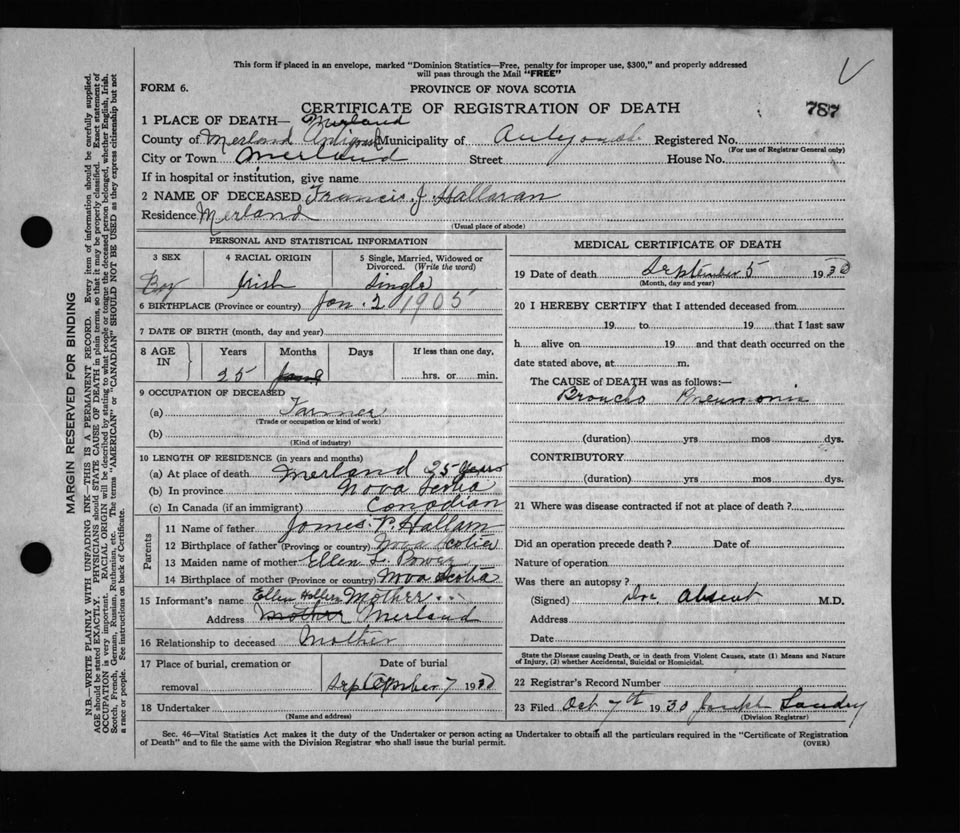 This form if placed in an envelope, marked "Dominion Statistics—Free, penalty for improper use, $300," and properly addressed
will pass through the Mail "FREE"
FORM 6.
PROVINCE OF NOVA SCOTIA
787
CERTIFICATE OF REGISTRATION OF DEATH
1 PLACE OF DEATH— Merland
County of Merland Municipality of Registered No.
(For use of Registrar General only)
City or Town Merland Street House No.
If in hospital or institution, give name
2 NAME OF DECEASED Francis J Hallaran
Residence Merland
(Usual place of abode)
PERSONAL AND STATISTICAL INFORMATION
3 SEX
Boy
4 RACIAL ORIGIN
Irish
5 Single, Married, Widowed or
Divorced. (Write the word)
Single
6 BIRTHPLACE (Province or country) Jan. 2 1905
7 DATE OF BIRTH (month, day and year)
8 AGE IN
Years Months Days If less than one day,
25 hrs. or min.
9 OCCUPATION OF DECEASED
(a) Farmer
(Trade or occupation or kind of work)
(b)
(Kind of industry)
10 LENGTH OF RESIDENCE (in years and months)
(a) At place of death Merland 25 years
(b) In province Nova Scotia
(c) In Canada (if an immigrant) Canadian
Parents
11 Name of father James P. Hallam
12 Birthplace of father (Province or country) Nova Scotia
13 Maiden name of mother Ellen L. Power
14 Birthplace of mother (Province or country) Nova Scotia
15 Informant's name Ellen Mother
Address Mother Merland
16 Relationship to deceased Mother
17 Place of burial, cremation or
removal
Date of burial
September 7 1930
18 Undertaker
(Name and address)
MEDICAL CERTIFICATE OF DEATH
19 Date of death September 5 1930
(Month, day and year)
20 I HEREBY CERTIFY that I attended deceased from
19 to 19 that I last saw
h alive on 19 and that death occurred on the
date stated above, at m.
The CAUSE of DEATH was as follows:—
Broncho Pneumonia
(duration) yrs mos dys.
CONTRIBUTORY
(duration) yrs mos dys.
21 Where was disease contracted if not at place of death?
Did an operation precede death? Date of
Nature of operation
Was there an autopsy?
(Signed) Doc Absent M.D.
Address
Date
State the Disease causing Death, or in death from Violent Causes, state (1) Means and Nature
of Injury, (2) whether Accidental, Suicidal or Homicidal.
22 Registrar's Record Number
23 Filed Oct 7th 1930 Joseph Landry
(Division Registrar)
Sec. 46—Vital Statistics Act makes it the duty of the Undertaker or person acting as Undertaker to obtain all the particulars required in the "Certificate of Registration
of Death" and to file the same with the Division Registrar who shall issue the burial permit.
(OVER)
MARGIN RESERVED FOR BINDING
N.B.—WRITE PLAINLY WITH UNFADING INK—THIS IS A PERMANENT RECORD. Every item of information should be carefully supplied.
AGE should be stated EXACTLY. PHYSICIANS should STATE CAUSE OF DEATH in plain terms, so that it may be properly classified. Exact statement of
OCCUPATION is very important. RACIAL ORIGIN will be described by stating to what people or tongue the deceased person belonged, whether English, Irish,
Scotch, French, German, Russian, Ruthenian, etc. The terms "AMERICAN" or "CANADIAN" SHOULD NOT BE USED as they express citizenship but not
a race or people. See instructions on back of Certificate.